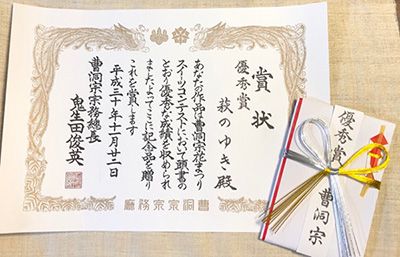 賞状
優秀賞
萩のゆき殿
あなたの作品は曹洞宗花まつり
スイーツコンテストにおいて頭書の
とおり優秀な成績を収められ
ましたよってここに記念品を贈り
これを賞します
平成三十年十一月廿二日
曹洞宗宗務総長
鬼生田俊英
曹洞宗宗務廳
優秀賞
曹洞宗